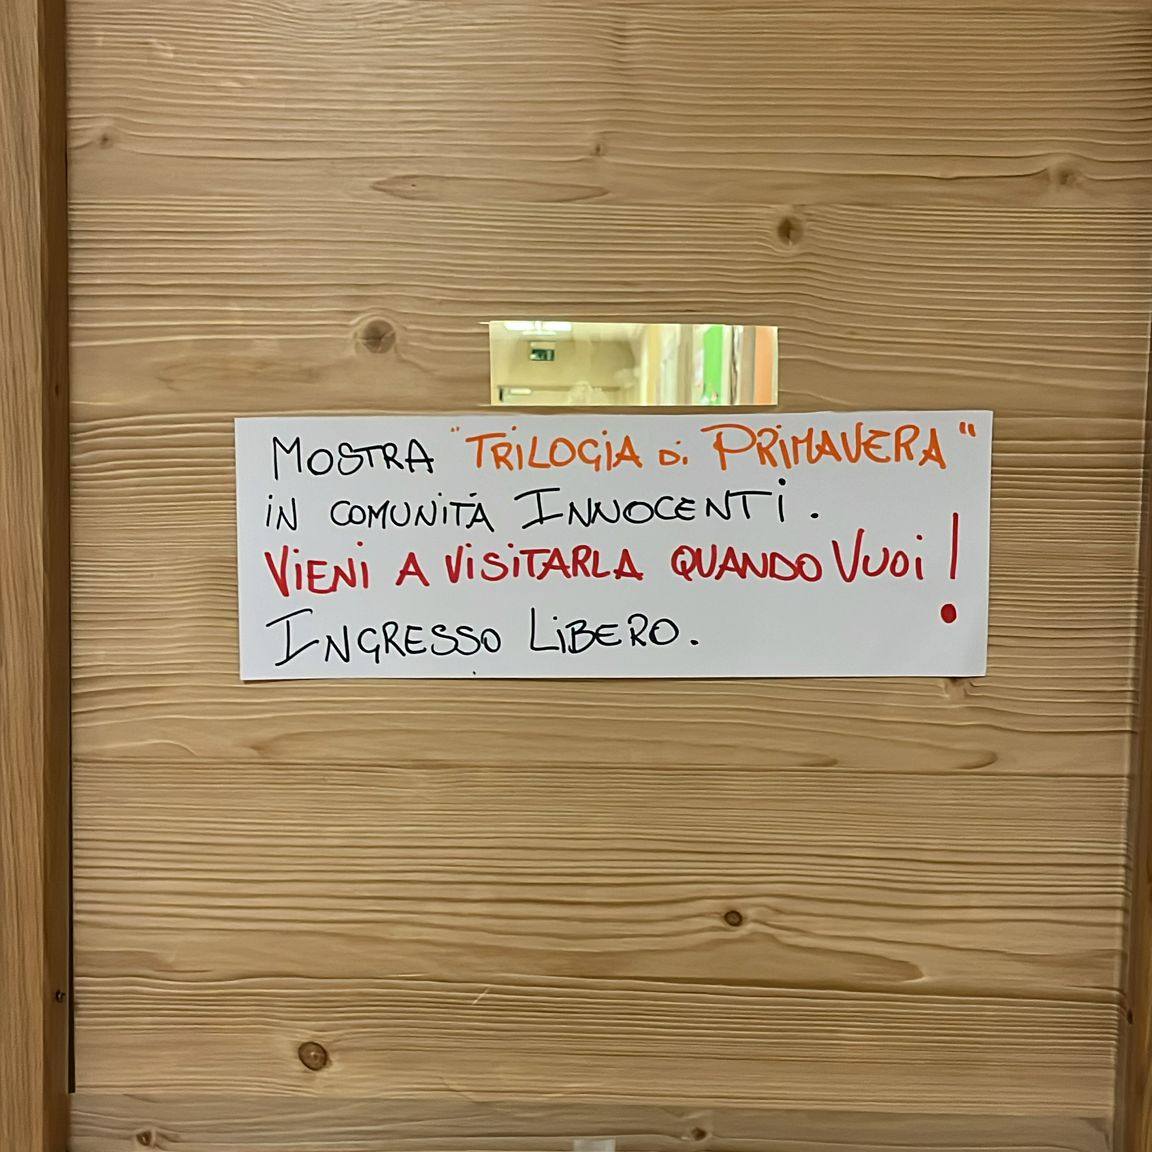 MOSTRA "TRILOGIA Di PRIMAVERA"
iN COMUNITÀ INNOCENTi.
ViENi A ViSiTARLA QUANDO VUOi!
INGRESSO LiBERO.